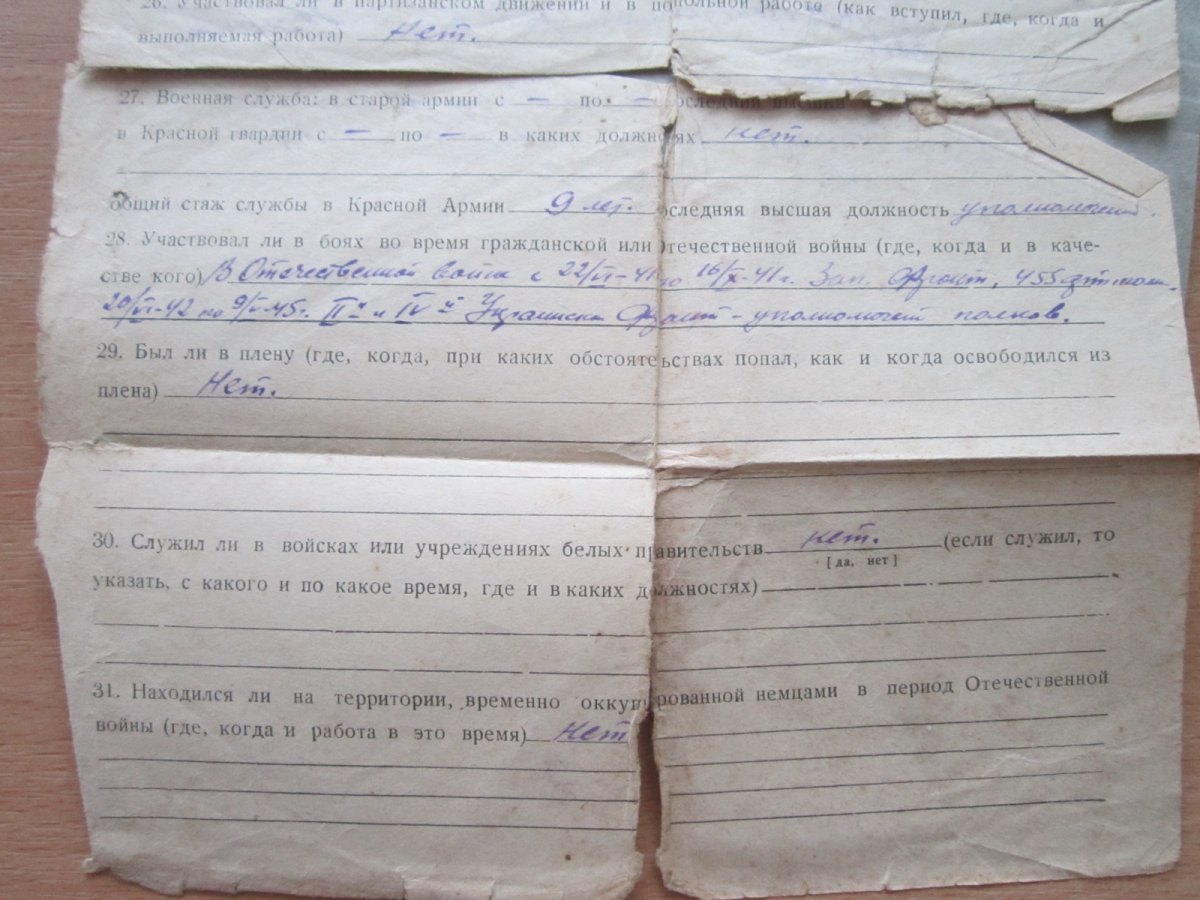 26. Участвовал ли в партизанском движении и в подпольной работе (как вступил, где, когда и
выполняемая работа) Нет.
27. Военная служба: в старой армии с — по — последний высший
в Красной гвардии с — по — в каких должностях нет.
общий стаж службы в Красной Армии 9 лет. последняя высшая должность уполномочен.
28. Участвовал ли в боях во время гражданской или Отечественной войны (где, когда и в каче-
стве кого) В Отечественной войне с 22/VI-41 по 16/X-41г. Зап. Фронт, 455
20/VI-42 по 9/V-45г. II й и IV й Украински Фронт - уполномочен полков.
29. Был ли в плену (где, когда, при каких обстоятельствах попал, как и когда освободился из
плена) Нет.
30. Служил ли в войсках или учреждениях белых правительств нет. (если служил, то
[да, нет]
указать, с какого и по какое время, где и в каких должностях)
31. Находился ли на территории, временно оккупированной немцами в период Отечественной
войны (где, когда и работа в это время) Нет